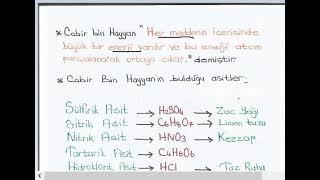 * Cabir bin Hayyan " Her maddenin içerisinde
büyük bir enerji vardır ve bu enerji atom
parçalanarak ortaya çıkar. " demiştir.
* Cabir Bin Hayyan'ın bulduğu asitler.
Sülfirik Asit → H₂SO₄ → Zaç Yağı
Sitrik Asit → C₆H₈O₇ → Limon tuzu
Nitrik Asit → HNO₃ → Kezzap
Tartarik Asit → C₄H₆O₆
Hidroklorik Asit → HCl → Tuz Ruhu